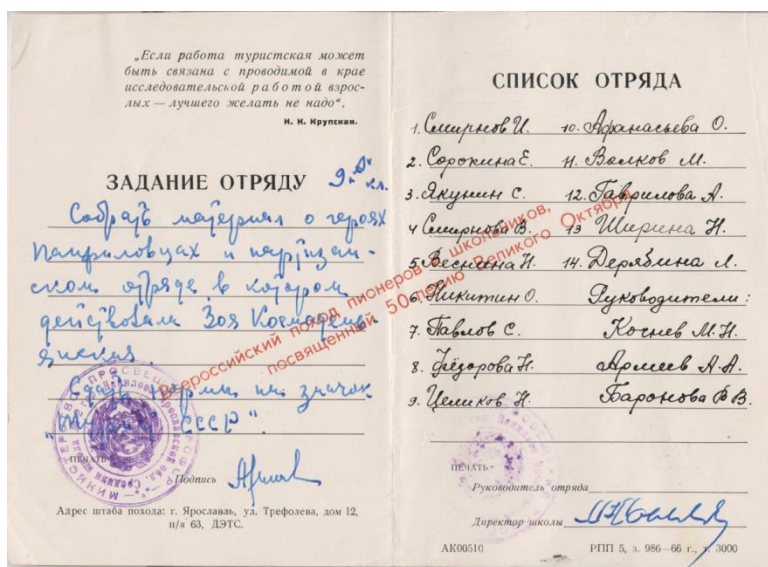 „Если работа туристская может
быть связана с проводимой в крае
исследовательской работой взрос-
лых — лучшего желать не надо“.
Н. К. Крупская.
ЗАДАНИЕ ОТРЯДУ 9 кл.
Собрать материал о героях
Панфиловцах и партизан-
ском отряде, в котором
действовала Зоя Космодемь-
янская.
Сдать нормы на значок
"Турист СССР".
Всероссийский поход пионеров и школьников,
посвященный 50-летию Великого Октября
ПЕЧАТЬ
Подпись
Адрес штаба похода: г. Ярославль, ул. Трефолева, дом 12,
п/я 63, ДЭТС.
СПИСОК ОТРЯДА
1. Смирнов И.
2. Сорокина Е.
3. Якунин С.
4 Смирнова В.
5. Веснина Н.
6. Никитин О.
7. Павлов С.
8. Фёдорова Н.
9. Целиков Н.
10. Афанасьева О.
11. Волков М.
12. Гаврилова А.
13 Ширина Н.
14. Дерябина Л.
Руководители:
Кочнев М.Н.
Армеев А.А.
Баронова В В.
ПЕЧАТЬ
Руководитель отряда
Директор школы
АК00510 РПП 5, з. 986—66 г., т. 3000